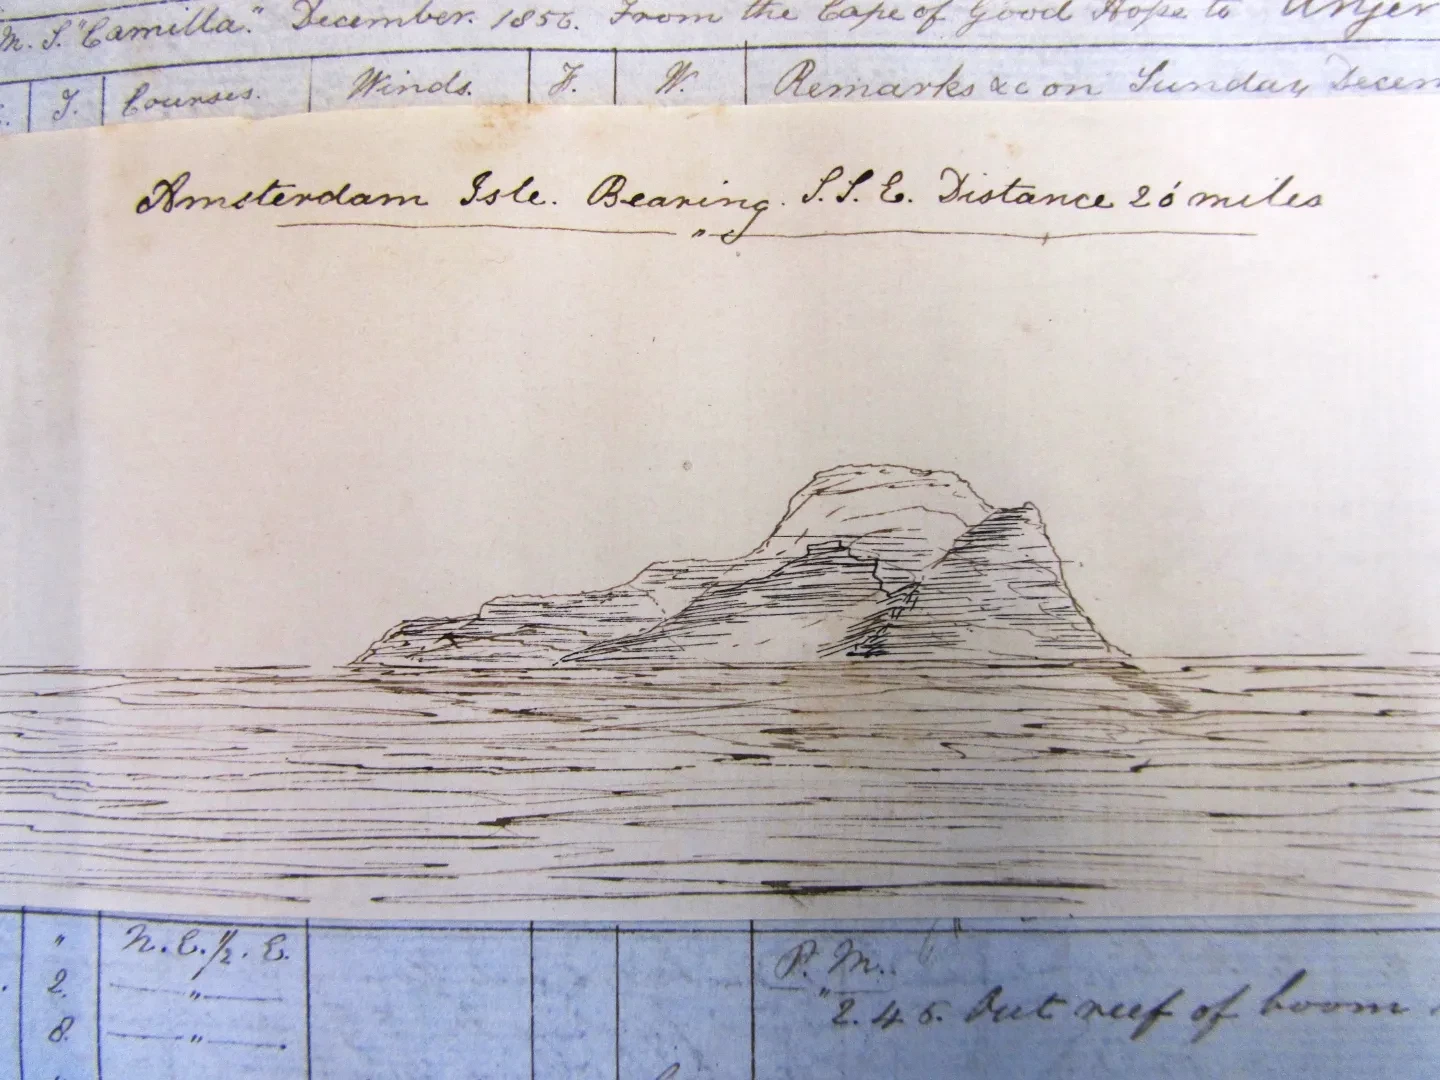 M. S. "Camilla." December. 1856. From the Cape of Good Hope to Anjer
T. Courses. Winds. F. W. Remarks &c on Sunday Decem
Amsterdam Isle. Bearing. S. S. E. Distance 26 miles
"
" N. E. ½. E. P. M.
2. " "
8. " 2. 45. Out reef of boom